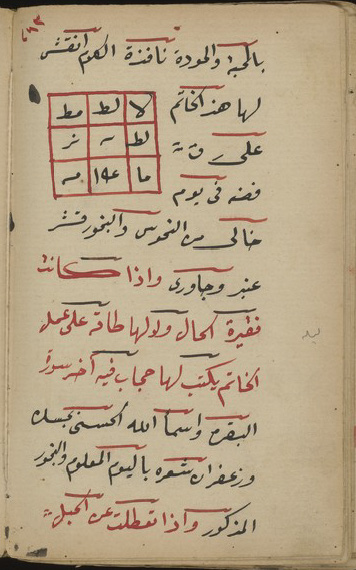 بالمحبه والمودة نافذة الكلام انقش
لها هذ الخاتم
على
فضه فى يوم
خالى من النحوس والبخور قشر
عنبر وجاورى واذا كانت
فقيرة الحال ولا لها طاقه على عمل
الخاتم يكتب لها حجاب فيه آخر سورة
البقره واسما الله الحسنى بمسك
وزعفران شعره باليوم المعلوم والبخور
المذكور واذا تعطلت عن الحبل
لا لط مط
لط
ما مه